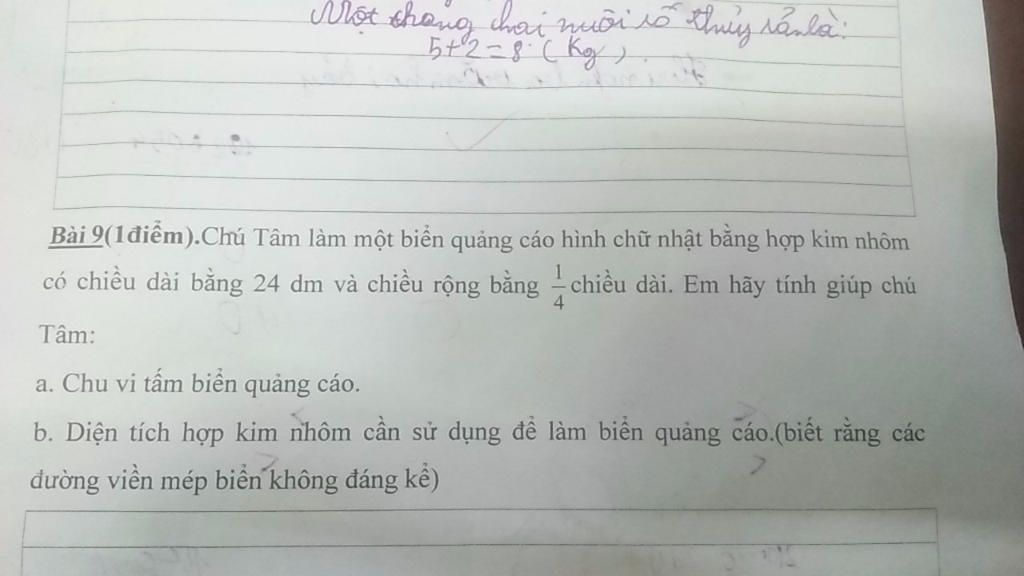 Một tháng chai nuôi số thủy sản là:
5+2=8 (kg)
Bài 9(1điểm).Chú Tâm làm một biển quảng cáo hình chữ nhật bằng hợp kim nhôm
có chiều dài bằng 24 dm và chiều rộng bằng 1/4 chiều dài. Em hãy tính giúp chú
Tâm:
a. Chu vi tấm biển quảng cáo.
b. Diện tích hợp kim nhôm cần sử dụng để làm biển quảng cáo.(biết rằng các
đường viền mép biển không đáng kể)